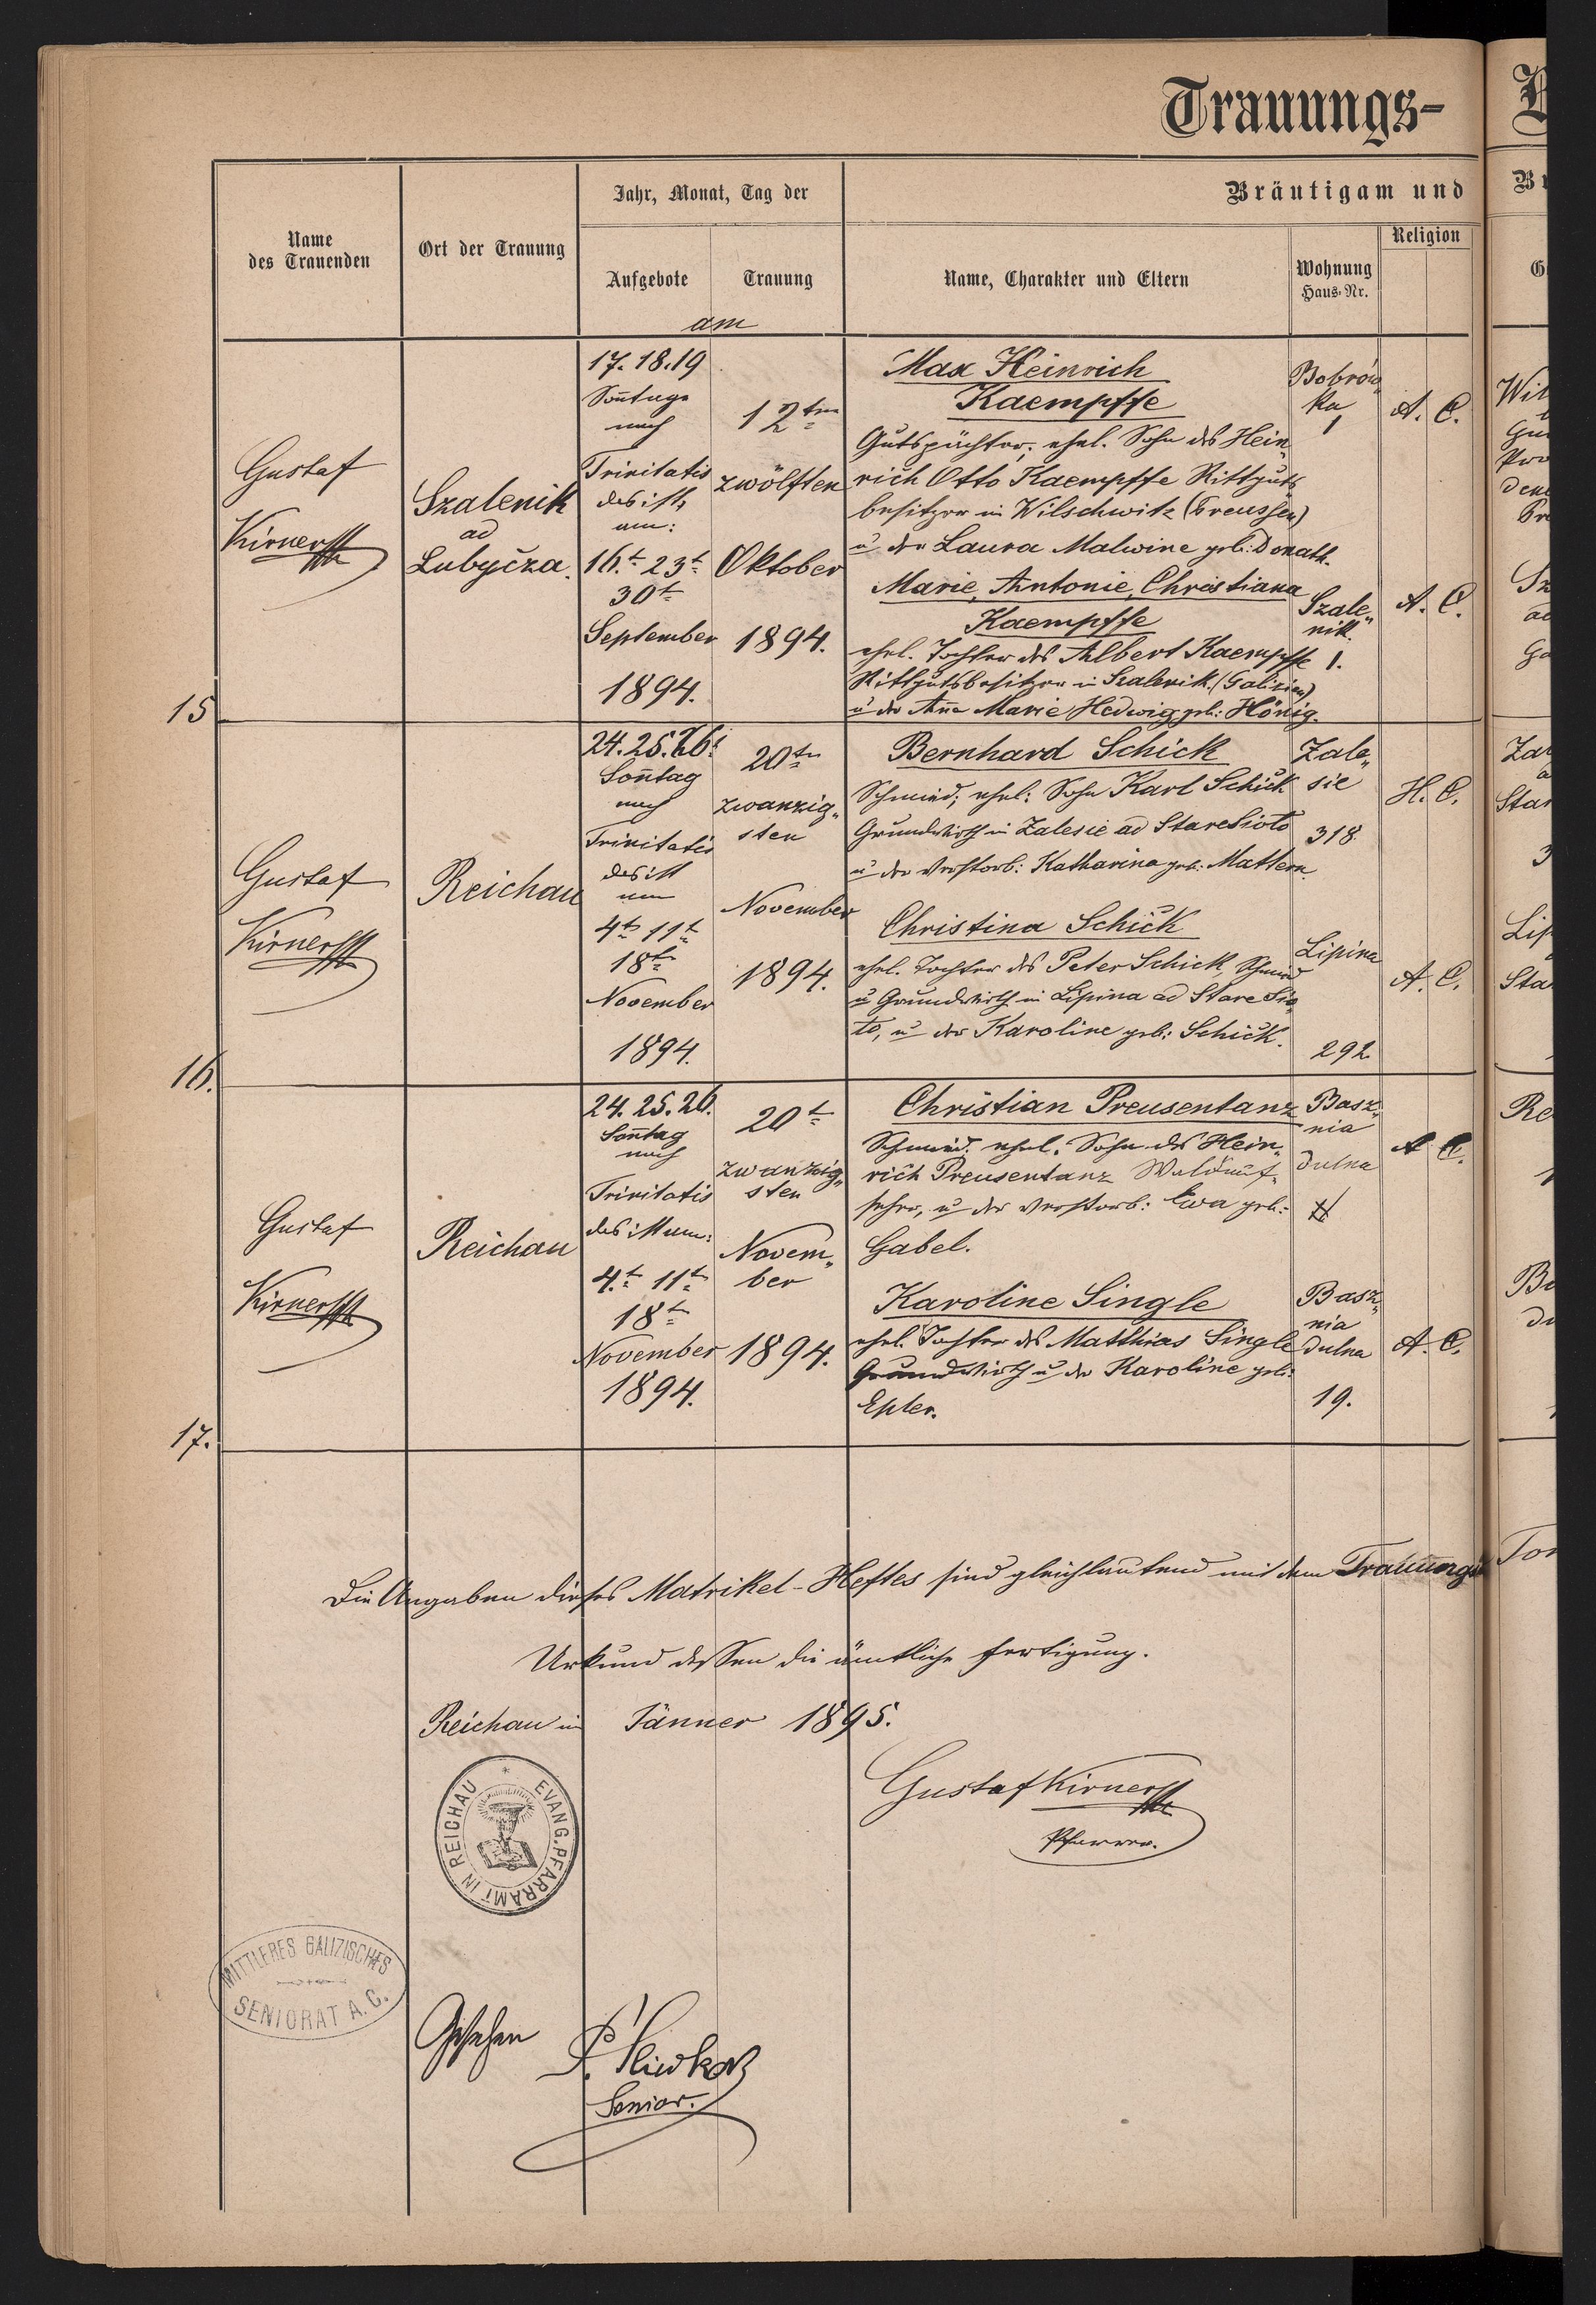 Trauungs-
Name
des Trauenden
Ort der Trauung
Jahr, Monat, Tag der
Aufgebote
Trauung
am
Bräutigam und
Name, Charakter und Eltern
Wohnung
Haus-Nr.
Religion
15
Gustaf
Kirner
Szalenik
ad
Lubycza.
17. 18. 19
Soñtage
nach
Trinitatis
das ist
am:
16t 23t
30t
September
1894.
12ten
zwölften
Oktober
1894.
Max Heinrich
Kaempffe
Gutspächter, ehel. Sohn des Hein„
rich Otto Kaempffe Rittguts
besitzer in Wilschwitz (Preussen)
u der Laura Malwine geb: Donath.
Bobrów„
ka
1
A. C.
Marie, Antonie, Christiana
Kaempffe
ehel. Tochter des Albert Kaempffe
Rittgutsbesitzer in Szalenik (Galizien)
u der Aña Marie Hedwig geb: Hönig.
Szale„
nik
1.
A. C.
16.
Gustaf
Kirner
Reichau
24. 25. 26.
Soñtag
nach
Trinitatis
das ist
am
4t 11t
18t
November
1894.
20ten
zwanzig„
sten
November
1894.
Bernhard Schick
Schmied; ehel: Sohn Karl Schick
Grundwirth in Zalesie ad StareSioło
u der verstorb: Katharina geb: Mattern.
Zale„
sie
318
H. C.
Christina Schick
ehel. Tochter des Peter Schick, Schmied
u Grundwirth in Lipina ad Stare Sio„
ło, u der Karoline geb: Schick.
Lipina
292.
A. C.
17.
Gustaf
Kirner
Reichau
24. 25. 26.
Soñtag
nach
Trinitatis
das ist am:
4t 11t
18t
November
1894.
20t
zwanzig„
sten
Novem„
ber
1894.
Christian Preusentanz
Schmied, ehel. Sohn des Hein„
rich Preusentanz Waldauf„
seher, u der verstorb: Ewa geb:
Gabel.
Basz„
nia
dulna
A C.
Karoline Single
ehel. Tochter des Matthias Single
Grundwirth u der Karoline geb:
Epler.
Basz„
nia
dulna
19.
A. C.
Die Angaben dieses Matrikel-Heftes sind gleichlautend mit dem Trauungs
Urkund dessen die ämtliche Fertigung.
Reichau im Jänner 1895.
Gustaf Kirner
Pfarrer.
EVANG. PFARRAMT IN REICHAU
MITTLERES GALIZISCHES
SENIORAT A. C.
Gesehen
Senior.